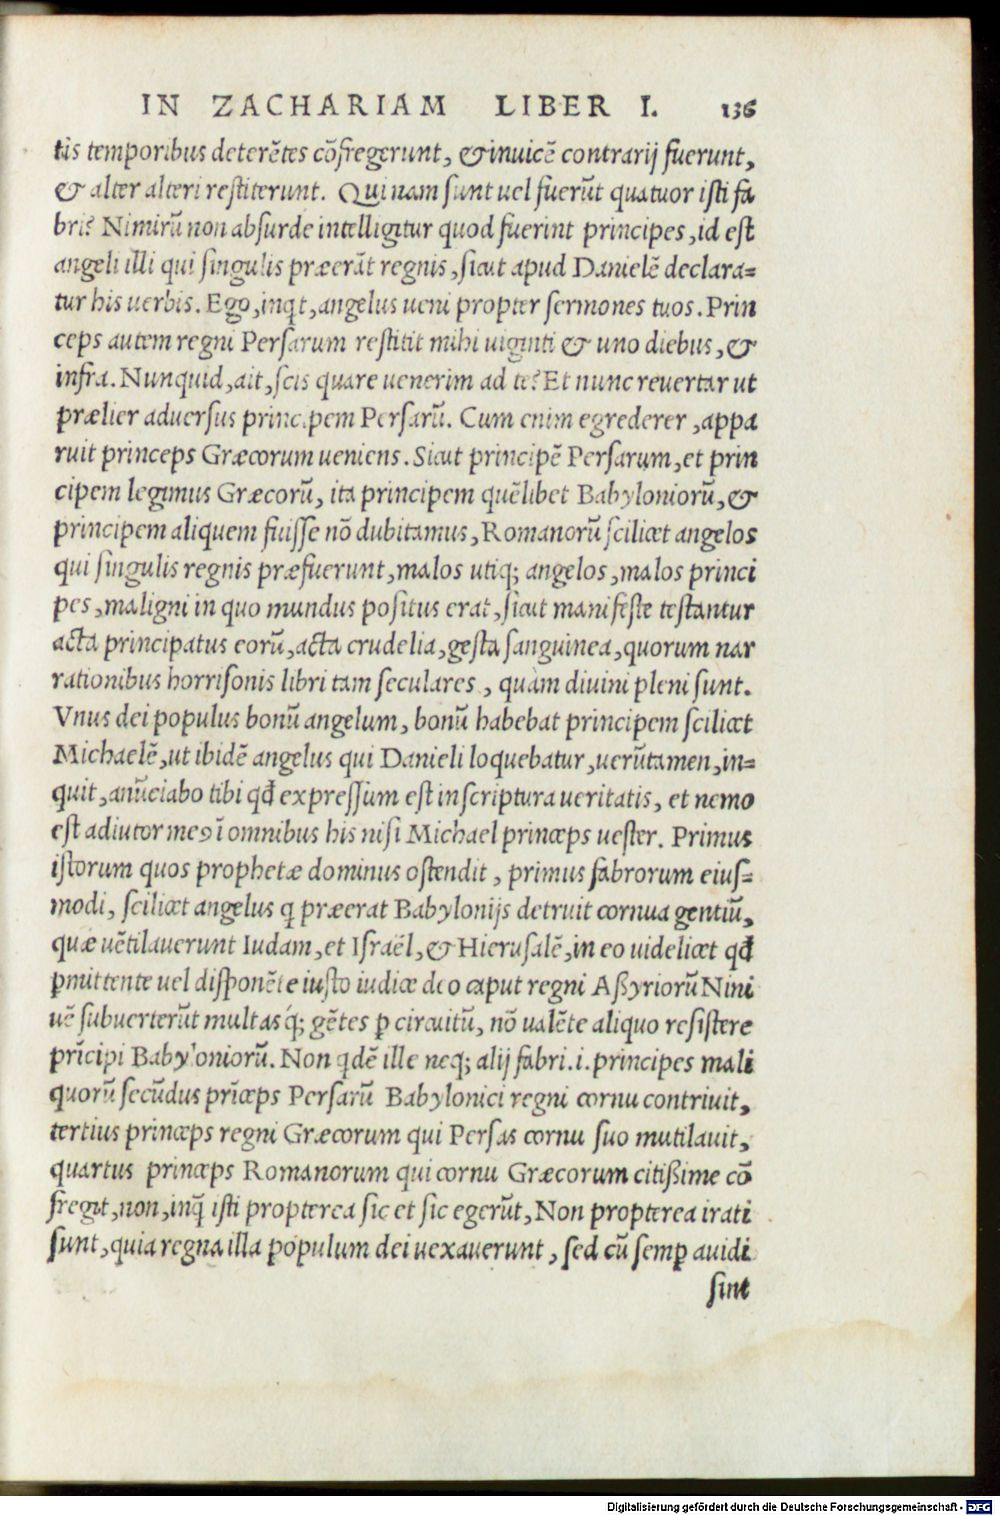 IN ZACHARIAM LIBER I. 136
tis temporibus deterẽtes cõfregerunt, & inuicẽ contrarij fuerunt,
& alter alteri restiterunt. Qui nam sunt uel fuerũt quatuor isti fa
bri? Nimirũ non absurde intelligitur quod fuerint principes, id est
angeli illi qui singulis præerãt regnis, sicut apud Danielẽ declara=
tur his uerbis. Ego, inqt, angelus ueni propter sermones tuos. Prin
ceps autem regni Persarum restitit mihi uiginti & uno diebus, &
infra. Nunquid, ait, scis quare uenerim ad te? Et nunc reuertar ut
prælier aduersus principem Persarũ. Cum enim egrederer, appa
ruit princeps Græcorum ueniens. Sicut principẽ Persarum, et prin
cipem legimus Græcorũ, ita principem quẽlibet Babyloniorũ, &
principem aliquem fuisse nõ dubitamus, Romanorũ scilicet angelos
qui singulis regnis præfuerunt, malos utiq; angelos, malos princi
pes, maligni in quo mundus positus erat, sicut manifeste testantur
acta principatus eorũ, acta crudelia, gesta sanguinea, quorum nar
rationibus horrisonis libri tam seculares, quàm diuini pleni sunt.
Vnus dei populus bonũ angelum, bonũ habebat principem scilicet
Michaelẽ, ut ibidẽ angelus qui Danieli loquebatur, uerũtamen, in=
quit, anũciabo tibi qđ expressum est in scriptura ueritatis, et nemo
est adiutor meꝰ ĩ omnibus his nisi Michael princeps uester. Primus
istorum quos prophetæ dominus ostendit, primus fabrorum eius=
modi, scilicet angelus q præerat Babylonijs detruit cornua gentiũ,
quæ uẽtilauerunt Iudam, et Israël, & Hierusalẽ, in eo uidelicet qđ
ꝑmittente uel disponẽte iusto iudice deo caput regni Aßyriorũ Nini
uẽ subuerterũt multas q́; gẽtes ꝑ circuitũ, nõ ualẽte aliquo resistere
prĩcipi Babyloniorũ. Non qdẽ ille neq; alij fabri .i. principes mali
quorũ secũdus prĩceps Persarũ Babylonici regni cornu contriuit,
tertius princeps regni Græcorum qui Persas cornu suo mutilauit,
quartus princeps Romanorum qui cornu Græcorum citißime cõ
fregit, non, inq̃ isti propterea sic et sic egerũt, Non propterea irati
sunt, quia regna illa populum dei uexauerunt, sed cũ semꝑ auidi
sint
Digitalisierung gefördert durch die Deutsche Forschungsgemeinschaft - DFG